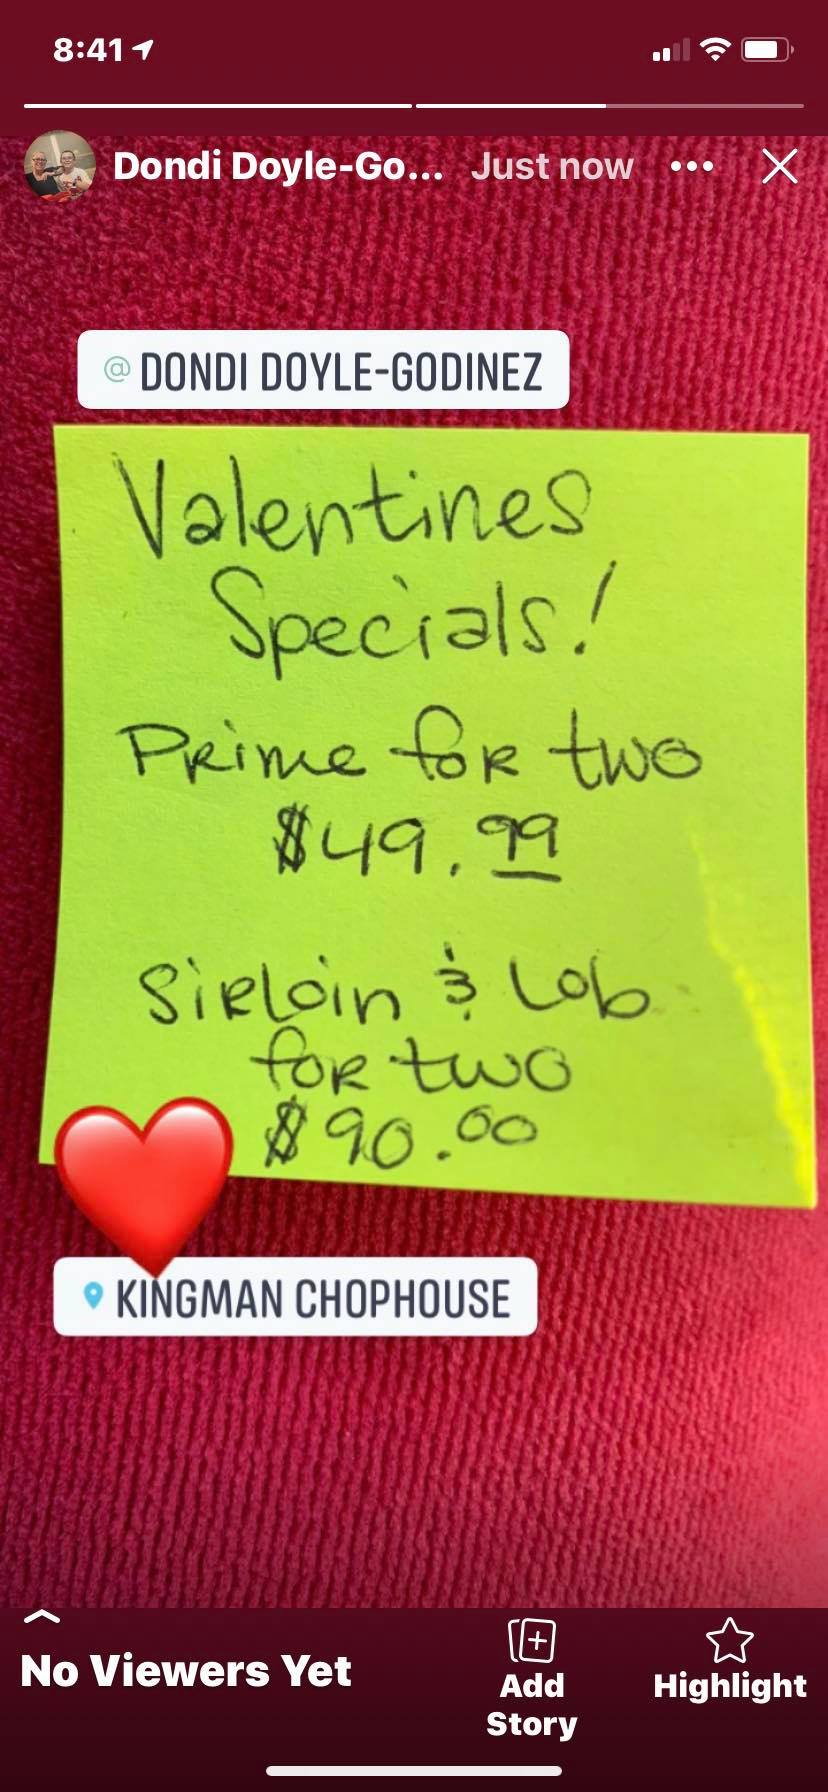 8:41
Dondi Doyle-Go... Just now
@ DONDI DOYLE-GODINEZ
Valentines
Specials!
Prime for two
$49.99
Sirloin & Lob
for two
$90.00
KINGMAN CHOPHOUSE
No Viewers Yet
Add
Story
Highlight